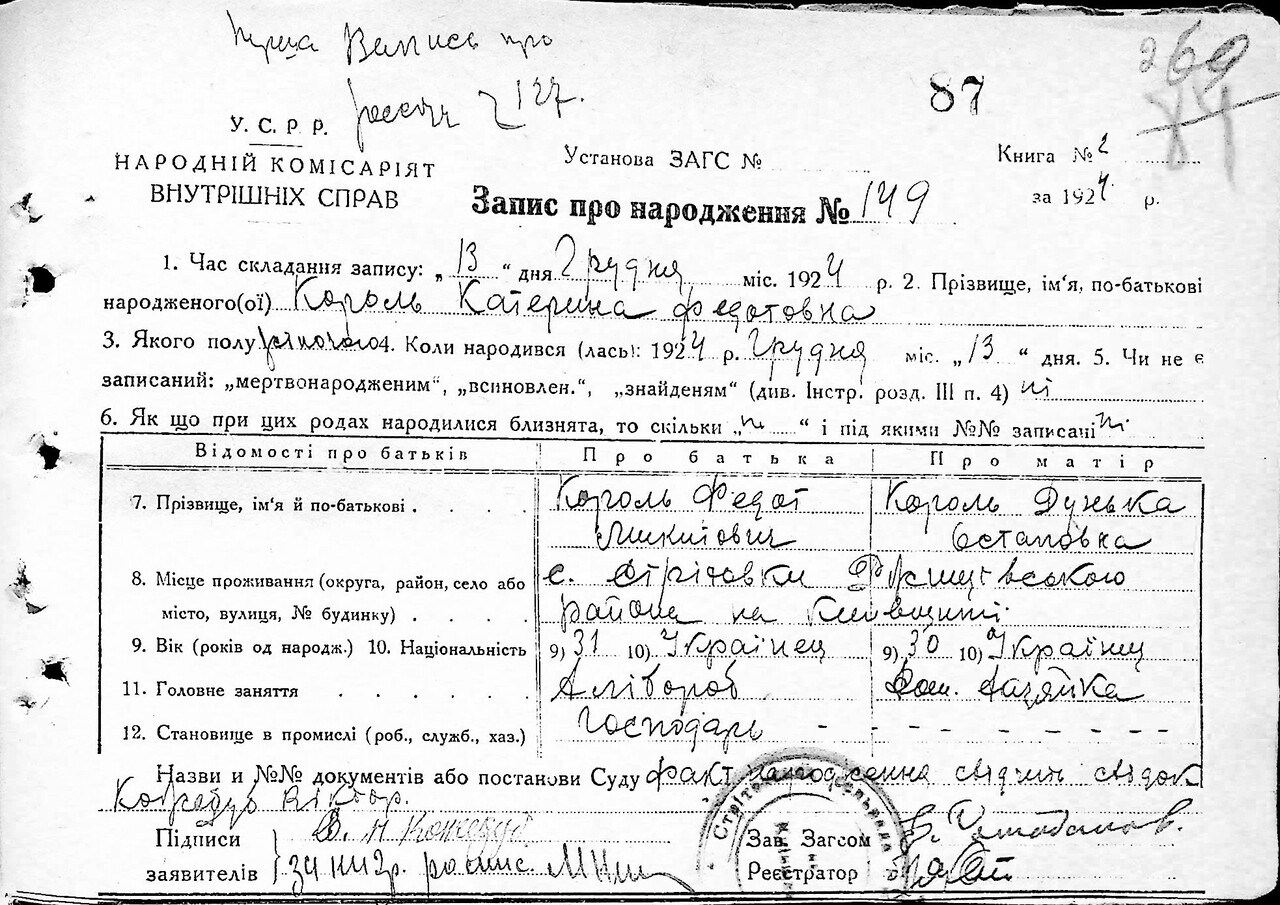 Запись про
127.
87
269
У. С. Р. Р.
НАРОДНІЙ КОМІСАРІЯТ
ВНУТРІШНІХ СПРАВ
Установа ЗАГС №
Книга № 2
за 1924 р.
Запис про народження № 149
1. Час складання запису: „ 13 “ дня Грудня міс. 1924 р. 2. Прізвище, ім'я, по-батькові
народженого(ої) Король Катерина Федотовна
3. Якого полу жіночого 4. Коли народився (лась): 1924 р. Грудня міс. „ 13 “ дня. 5. Чи не є
записаний: „мертвонародженим“, „всиновлен.“, „знайденям“ (див. Інстр. розд. III п. 4) ні
6. Як що при цих родах народилися близнята, то скільки „ ні “ і під якими №№ записані ні
Відомості про батьків Про батька Про матір
7. Прізвище, ім'я й по-батькові . . . . Король Федот Король Дунька
Микитович Остаповна
8. Місце проживання (округа, район, село або с. Стрітовки Ржищівського
місто, вулиця, № будинку) . . . . района на Київщині
9. Вік (років од народж.) 10. Національність 9) 31 10) Українец 9) 30 10) Українц
11. Головне заняття . . . . . . Хлібороб Дом. хазяйка
12. Становище в промислі (роб., служб., хаз.) Господарь - - - - - - - - -
Назви и №№ документів або постанови Суду факт народження свідчить свідок
Кожебуд Віктор.
Підписи В. Н Кожебуд
заявителів за нигр. роспис
Зав. Загсом
Реєстратор